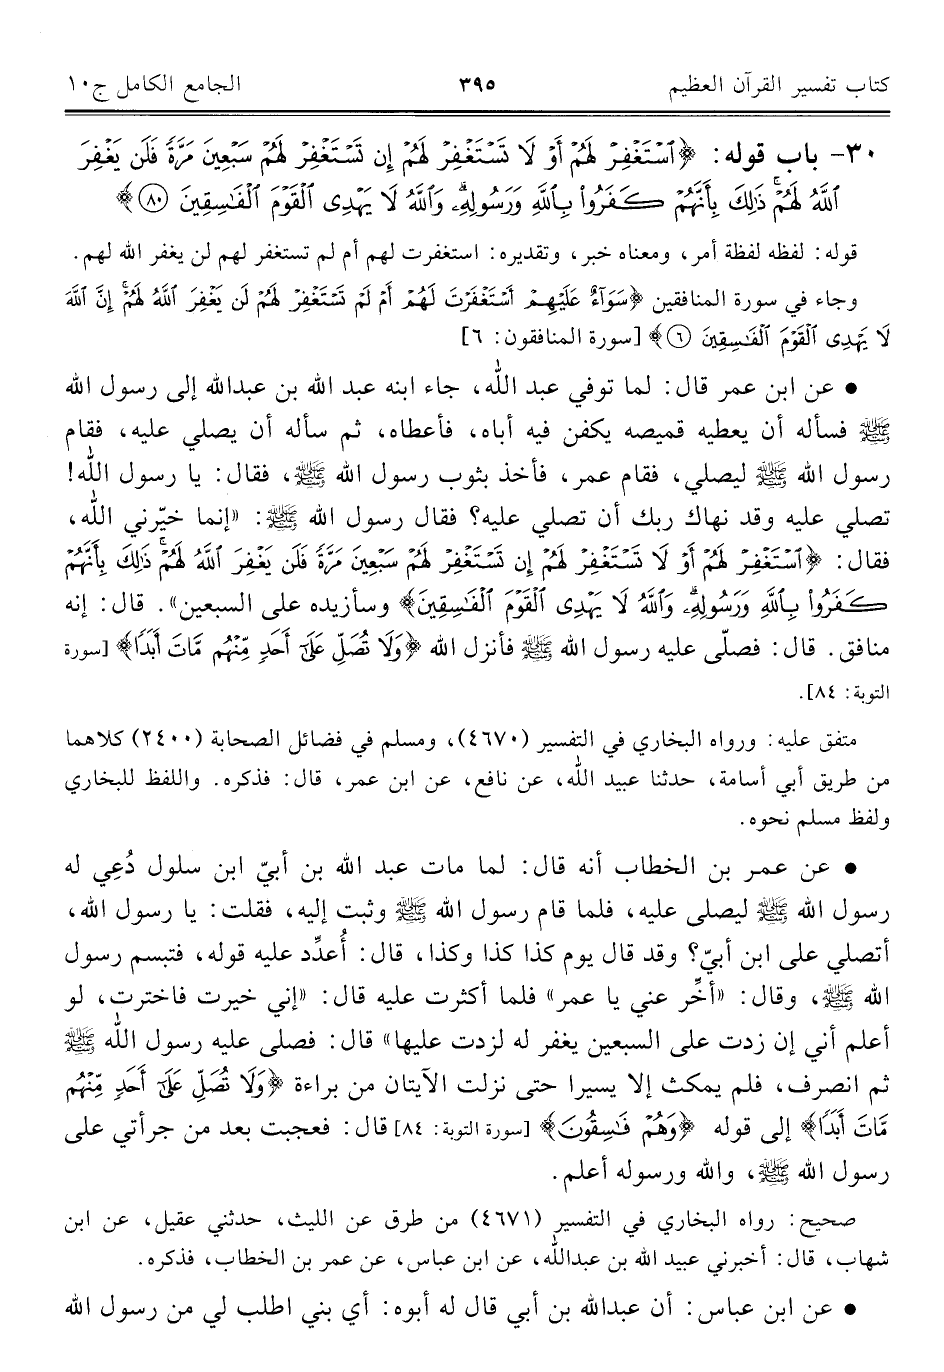 كتاب تفسير القرآن العظيم ٣٩٥ الجامع الكامل ج١٠
٣٠- باب قوله: ﴿ٱسۡتَغۡفِرۡ لَهُمۡ أَوۡ لَا تَسۡتَغۡفِرۡ لَهُمۡ إِن تَسۡتَغۡفِرۡ لَهُمۡ سَبۡعِينَ مَرَّةٗ فَلَن يَغۡفِرَ
ٱللَّهُ لَهُمۡۚ ذَٰلِكَ بِأَنَّهُمۡ كَفَرُواْ بِٱللَّهِ وَرَسُولِهِۦۗ وَٱللَّهُ لَا يَهۡدِي ٱلۡقَوۡمَ ٱلۡفَٰسِقِينَ ٨٠﴾
قوله: لفظه لفظة أمر، ومعناه خبر، وتقديره: استغفرت لهم أم لم تستغفر لهم لن يغفر الله لهم.
وجاء في سورة المنافقين ﴿سَوَآءٌ عَلَيۡهِمۡ أَسۡتَغۡفَرۡتَ لَهُمۡ أَمۡ لَمۡ تَسۡتَغۡفِرۡ لَهُمۡ لَن يَغۡفِرَ ٱللَّهُ لَهُمۡۚ إِنَّ ٱللَّهَ
لَا يَهۡدِي ٱلۡقَوۡمَ ٱلۡفَٰسِقِينَ ٦﴾ [سورة المنافقون: ٦]
• عن ابن عمر قال: لما توفي عبد الله، جاء ابنه عبد الله بن عبدالله إلى رسول الله
ﷺ فسأله أن يعطيه قميصه يكفن فيه أباه، فأعطاه، ثم سأله أن يصلي عليه، فقام
رسول الله ﷺ ليصلي، فقام عمر، فأخذ بثوب رسول الله ﷺ، فقال: يا رسول الله!
تصلي عليه وقد نهاك ربك أن تصلي عليه؟ فقال رسول الله ﷺ: «إنما خيّرني الله،
فقال: ﴿ٱسۡتَغۡفِرۡ لَهُمۡ أَوۡ لَا تَسۡتَغۡفِرۡ لَهُمۡ إِن تَسۡتَغۡفِرۡ لَهُمۡ سَبۡعِينَ مَرَّةٗ فَلَن يَغۡفِرَ ٱللَّهُ لَهُمۡۚ ذَٰلِكَ بِأَنَّهُمۡ
كَفَرُواْ بِٱللَّهِ وَرَسُولِهِۦۗ وَٱللَّهُ لَا يَهۡدِي ٱلۡقَوۡمَ ٱلۡفَٰسِقِينَ﴾ وسأزيده على السبعين». قال: إنه
منافق. قال: فصلّى عليه رسول الله ﷺ فأنزل الله ﴿وَلَا تُصَلِّ عَلَىٰٓ أَحَدٖ مِّنۡهُم مَّاتَ أَبَدٗا﴾ [سورة
التوبة: ٨٤].
متفق عليه: ورواه البخاري في التفسير (٤٦٧٠)، ومسلم في فضائل الصحابة (٢٤٠٠) كلاهما
من طريق أبي أسامة، حدثنا عبيد الله، عن نافع، عن ابن عمر، قال: فذكره. واللفظ للبخاري
ولفظ مسلم نحوه.
• عن عمر بن الخطاب أنه قال: لما مات عبد الله بن أبيّ ابن سلول دُعِي له
رسول الله ﷺ ليصلى عليه، فلما قام رسول الله ﷺ وثبت إليه، فقلت: يا رسول الله،
أتصلي على ابن أبيّ؟ وقد قال يوم كذا كذا وكذا، قال: أُعدِّد عليه قوله، فتبسم رسول
الله ﷺ، وقال: «أخِّر عني يا عمر» فلما أكثرت عليه قال: «إني خيرت فاخترت، لو
أعلم أني إن زدت على السبعين يغفر له لزدت عليها» قال: فصلى عليه رسول الله ﷺ
ثم انصرف، فلم يمكث إلا يسيرا حتى نزلت الآيتان من براءة ﴿وَلَا تُصَلِّ عَلَىٰٓ أَحَدٖ مِّنۡهُم
مَّاتَ أَبَدٗا﴾ إلى قوله ﴿وَهُمۡ فَٰسِقُونَ﴾ [سورة التوبة: ٨٤] قال: فعجبت بعد من جرأتي على
رسول الله ﷺ، والله ورسوله أعلم.
صحيح: رواه البخاري في التفسير (٤٦٧١) من طرق عن الليث، حدثني عقيل، عن ابن
شهاب، قال: أخبرني عبيد الله بن عبدالله، عن ابن عباس، عن عمر بن الخطاب، فذكره.
• عن ابن عباس: أن عبدالله بن أبي قال له أبوه: أي بني اطلب لي من رسول الله